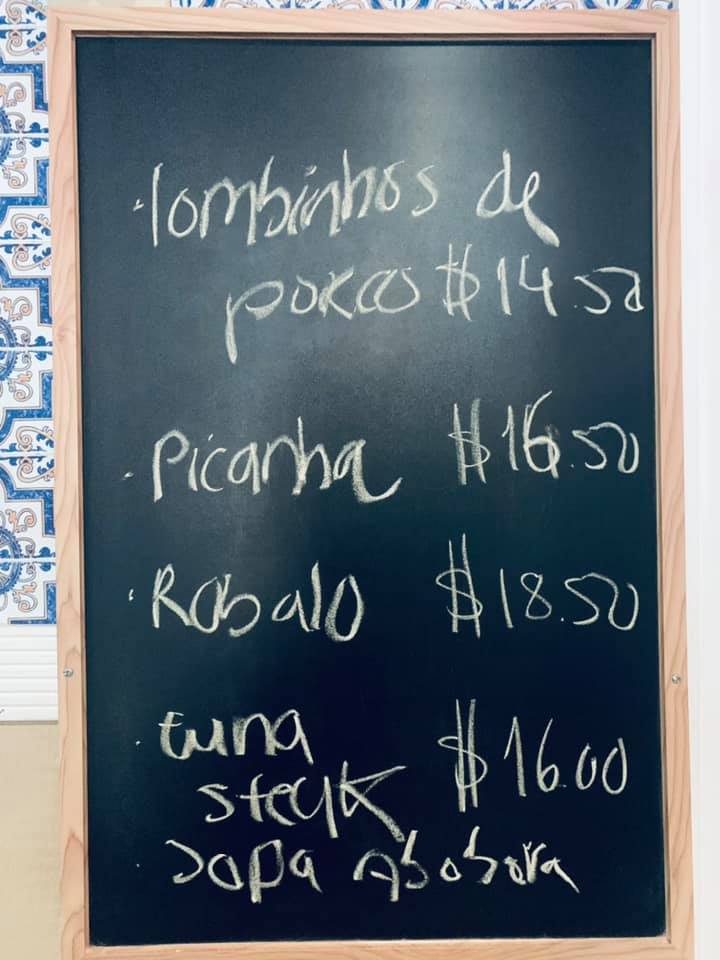 · lombinhos de
porco $14.50
· Picanha $16.50
· Robalo $18.50
· tuna
steak $16.00
· Sopa Abobora